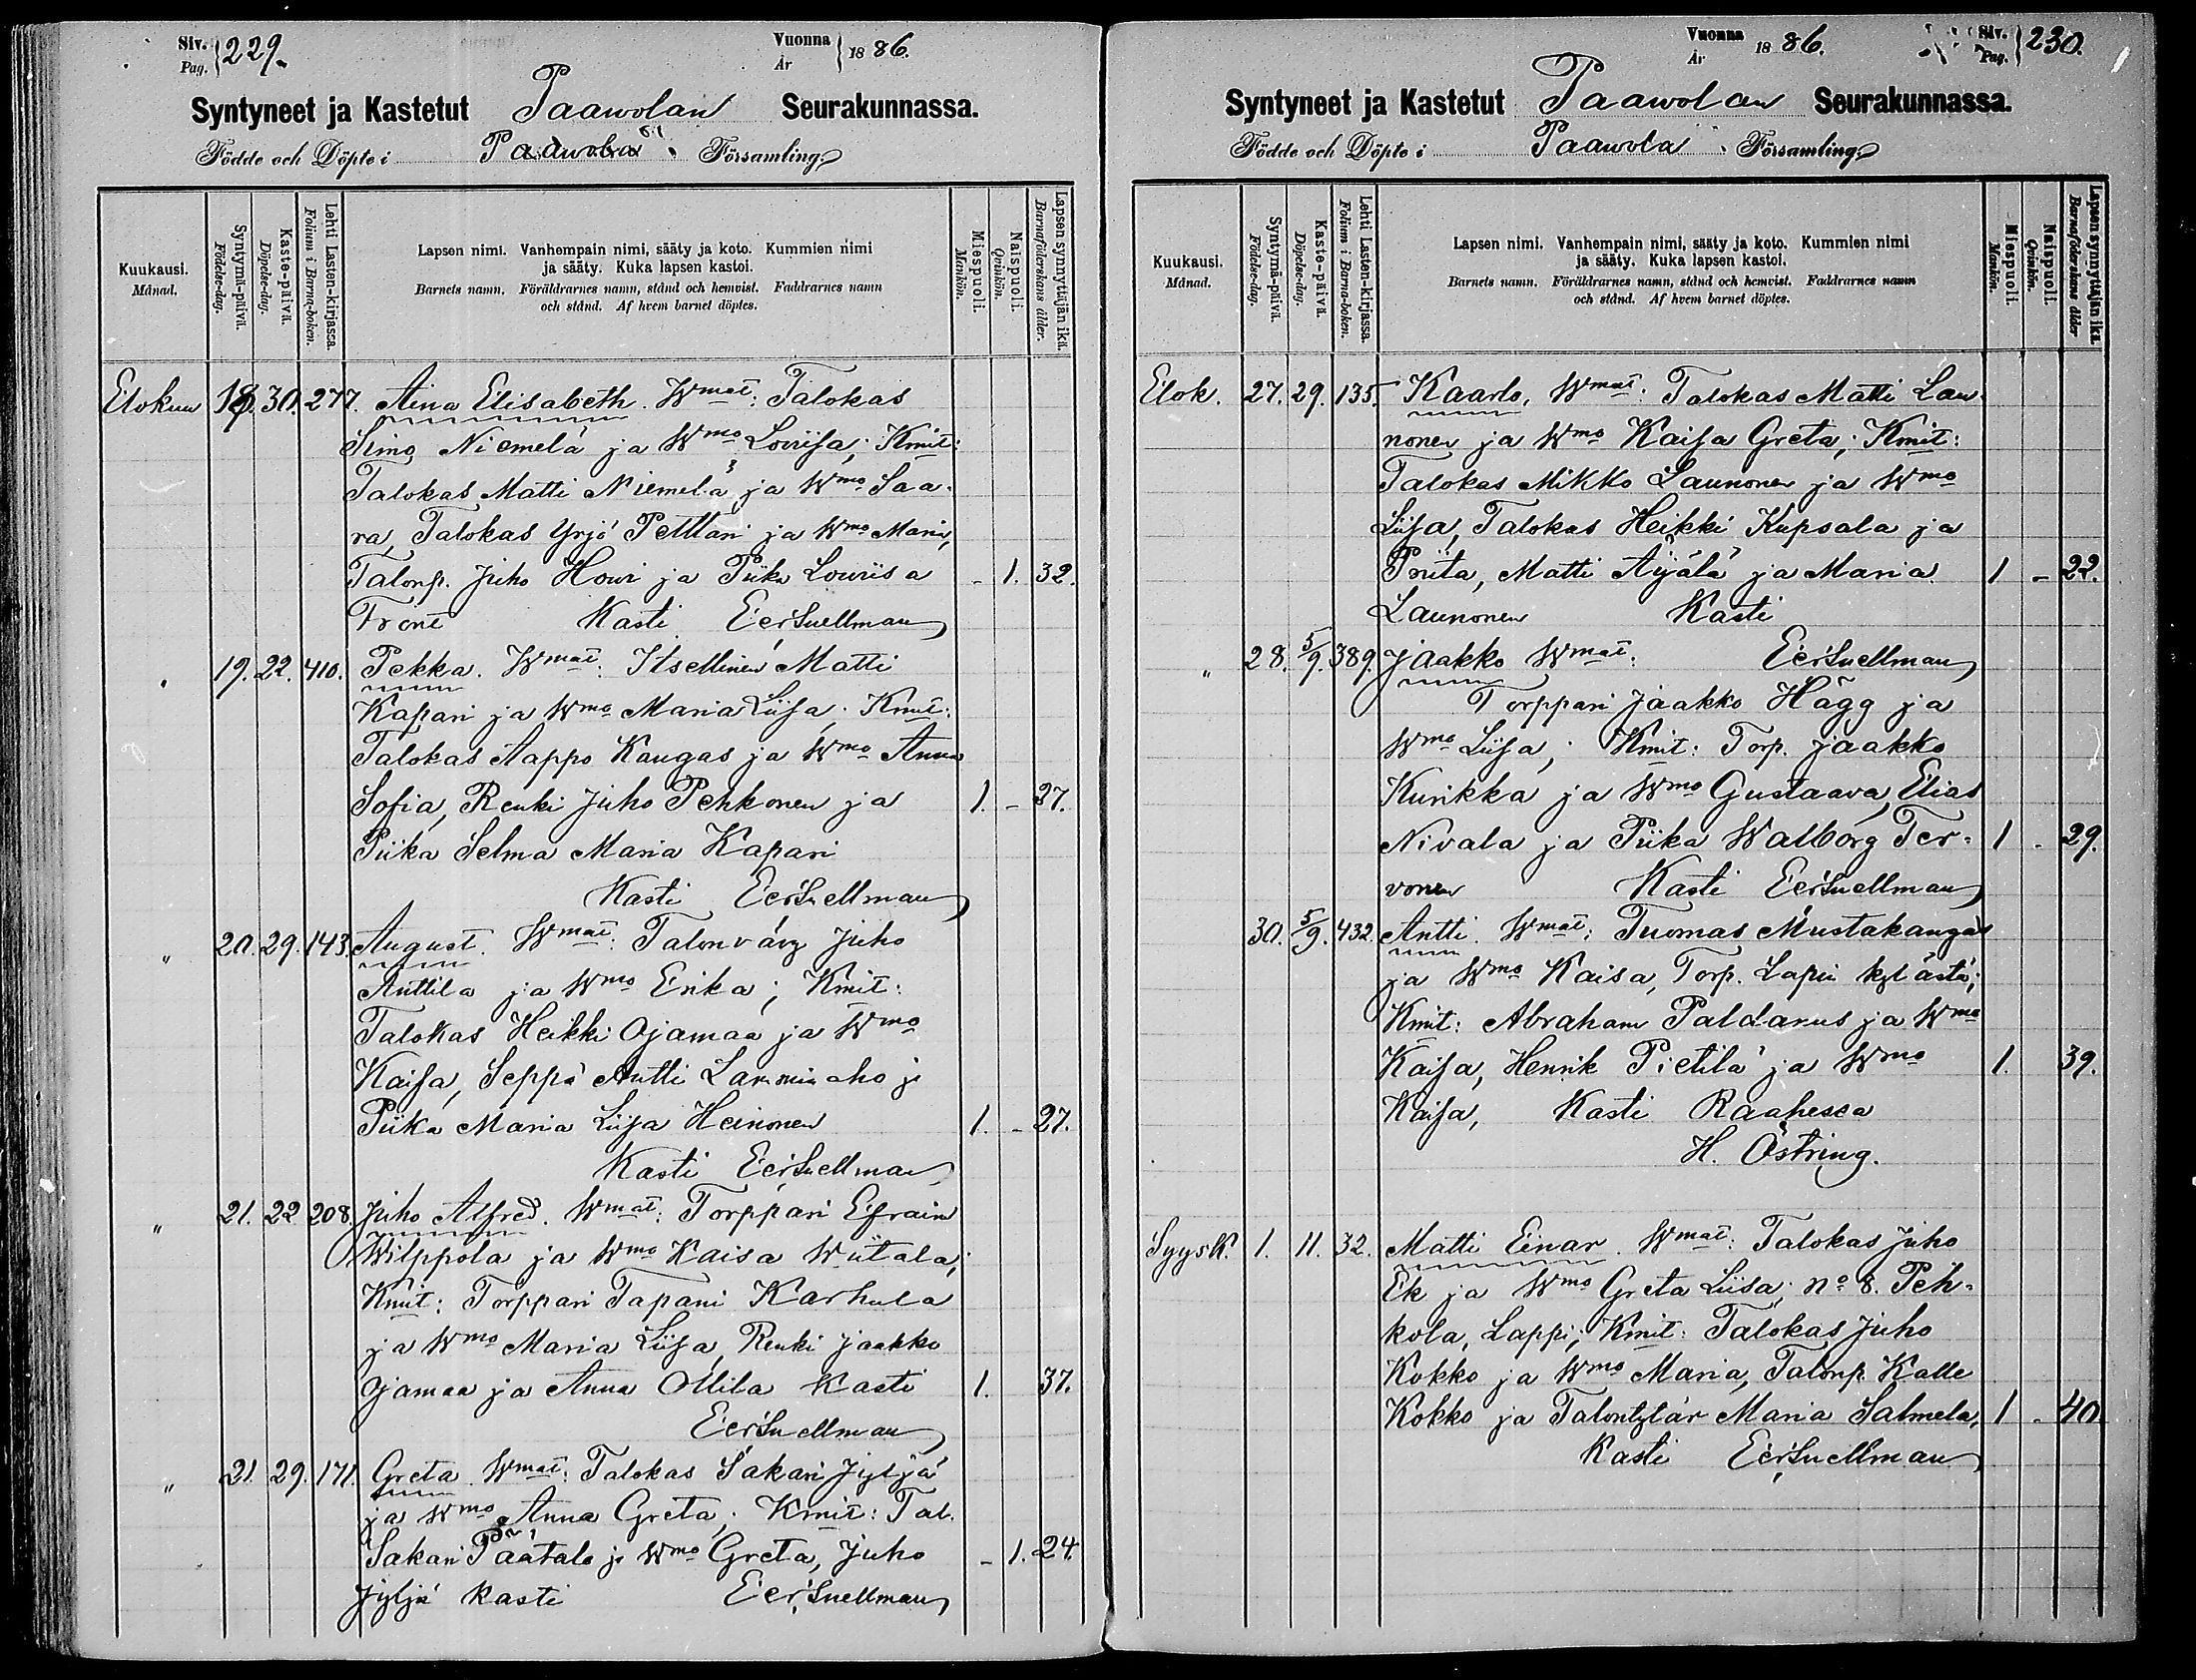 Siv. Pag. 229.
Vuonna År 1886.
Syntyneet ja Kastetut Paawolan Seurakunnassa.
Födde och Döpte i Paawola Församling.
Kuukausi. Månad.
Syntymä-päivä. Födelse-dag.
Kaste-päivä. Döpelse-dag.
Lehti Lasten-kirjassa. Folium i Barna-boken.
Lapsen nimi. Vanhempain nimi, sääty ja koto. Kummien nimi
ja sääty. Kuka lapsen kastoi.
Barnets namn. Föräldrarnes namn, stånd och hemvist. Faddrarnes namn
och stånd. Af hvem barnet döptes.
Miespuoli. Mankön.
Naispuoli. Qvinkön.
Lapsen synnyttäjän ikä. Barnaföderskans ålder.
Elokuu 18. 30. 277. Aina Elisabeth. Wmat: Talokas
Simo Niemelä ja Wmo Lovisa; Kmit:
Talokas Matti Niemelä ja Wmo Saa-
ra, Talokas Yrjö Pelttari ja Wmo Maria,
Talonp. Juho Howi ja Piika Lowiisa - 1. 32.
Front Kasti Eer. Snellman
19. 22. 410. Pekka. Wmat: Itsellinen Matti
Kapari ja Wmo Maria Liisa; Kmit:
Talokas Aappo Kangas ja Wmo Anna
Sofia, Renki Juho Pehkonen ja 1. - 27.
Piika Selma Maria Kapari
Kasti Eer. Snellman
" 20. 29. 143. August. Wmat: Talonväv Juho
Anttila ja Wmo Erika; Kmit:
Talokas Heikki Ojamaa ja Wmo
Kaisa, Seppä Antti Lamminaho j.
Piika Maria Liisa Heinonen 1. - 27.
Kasti Eer. Snellman
" 21. 22 208. Juho Alfred. Wmat: Torppari Efraim
Wilppola ja Wmo Kaisa Wiitala;
Kmit: Torppari Tapani Karhula
ja Wmo Maria Liisa, Renki Jaakko
Ojamaa ja Anna Ollila Kasti 1. 37.
Eer. Snellman
" 21. 29. 171. Greta. Wmat: Talokas Sakari Jyljä
ja Wmo Anna Greta; Kmit: Tal.
Sakari Päätalo j. Wmo Greta, Juho - 1. 24.
Jyljä kasti Eer. Snellman
Vuonna År 1886.
Siv. Pag. 230.
Syntyneet ja Kastetut Paawolan Seurakunnassa.
Födde och Döpte i Paawola Församling.
Kuukausi. Månad.
Syntymä-päivä. Födelse-dag.
Kaste-päivä. Döpelse-dag.
Lehti Lasten-kirjassa. Folium i Barna-boken.
Lapsen nimi. Vanhempain nimi, sääty ja koto. Kummien nimi
ja sääty. Kuka lapsen kastoi.
Barnets namn. Föräldrarnes namn, stånd och hemvist. Faddrarnes namn
och stånd. Af hvem barnet döptes.
Miespuoli. Mankön.
Naispuoli. Qvinkön.
Lapsen synnyttäjän ikä. Barnaföderskans ålder
Elok. 27. 29. 135. Kaarlo, Wmat: Talokas Matti Lau-
nonen ja Wmo Kaisa Greta; Kmit:
Talokas Mikko Launonen ja Wmo
Liisa, Talokas Heikki Kupsala ja
Priita, Matti Äijälä ja Maria 1 - 22.
Launonen Kasti
" 28. 5/9. 389. Jaakko Wmat: Eer. Snellman
Torppari Jaakko Hägg ja
Wmo Liisa; Kmit: Torp. Jaakko
Kurikka ja Wmo Gustaava, Elias
Nivala ja Piika Walborg Ter- 1 - 29.
vonen Kasti Eer. Snellman
30. 5/9. 432. Antti. Wmat: Tuomas Mustakangas
ja Wmo Kaisa, Torp. Lapin kylästä;
Kmit: Abraham Paldanus ja Wmo
Kaisa, Henrik Pietilä ja Wmo 1. 39.
Kaisa, Kasti Raahessa
H. Östring.
Syysk. 1. 11. 32. Matti Einar. Wmat: Talokas Juho
Ek ja Wmo Greta Liisa; No 8. Peh-
kola, Lappi; Kmit: Talokas Juho
Kokko ja Wmo Maria, Talonp. Kalle
Kokko ja Talontytär Maria Salmela, 1 - 40.
Kasti Eer. Snellman